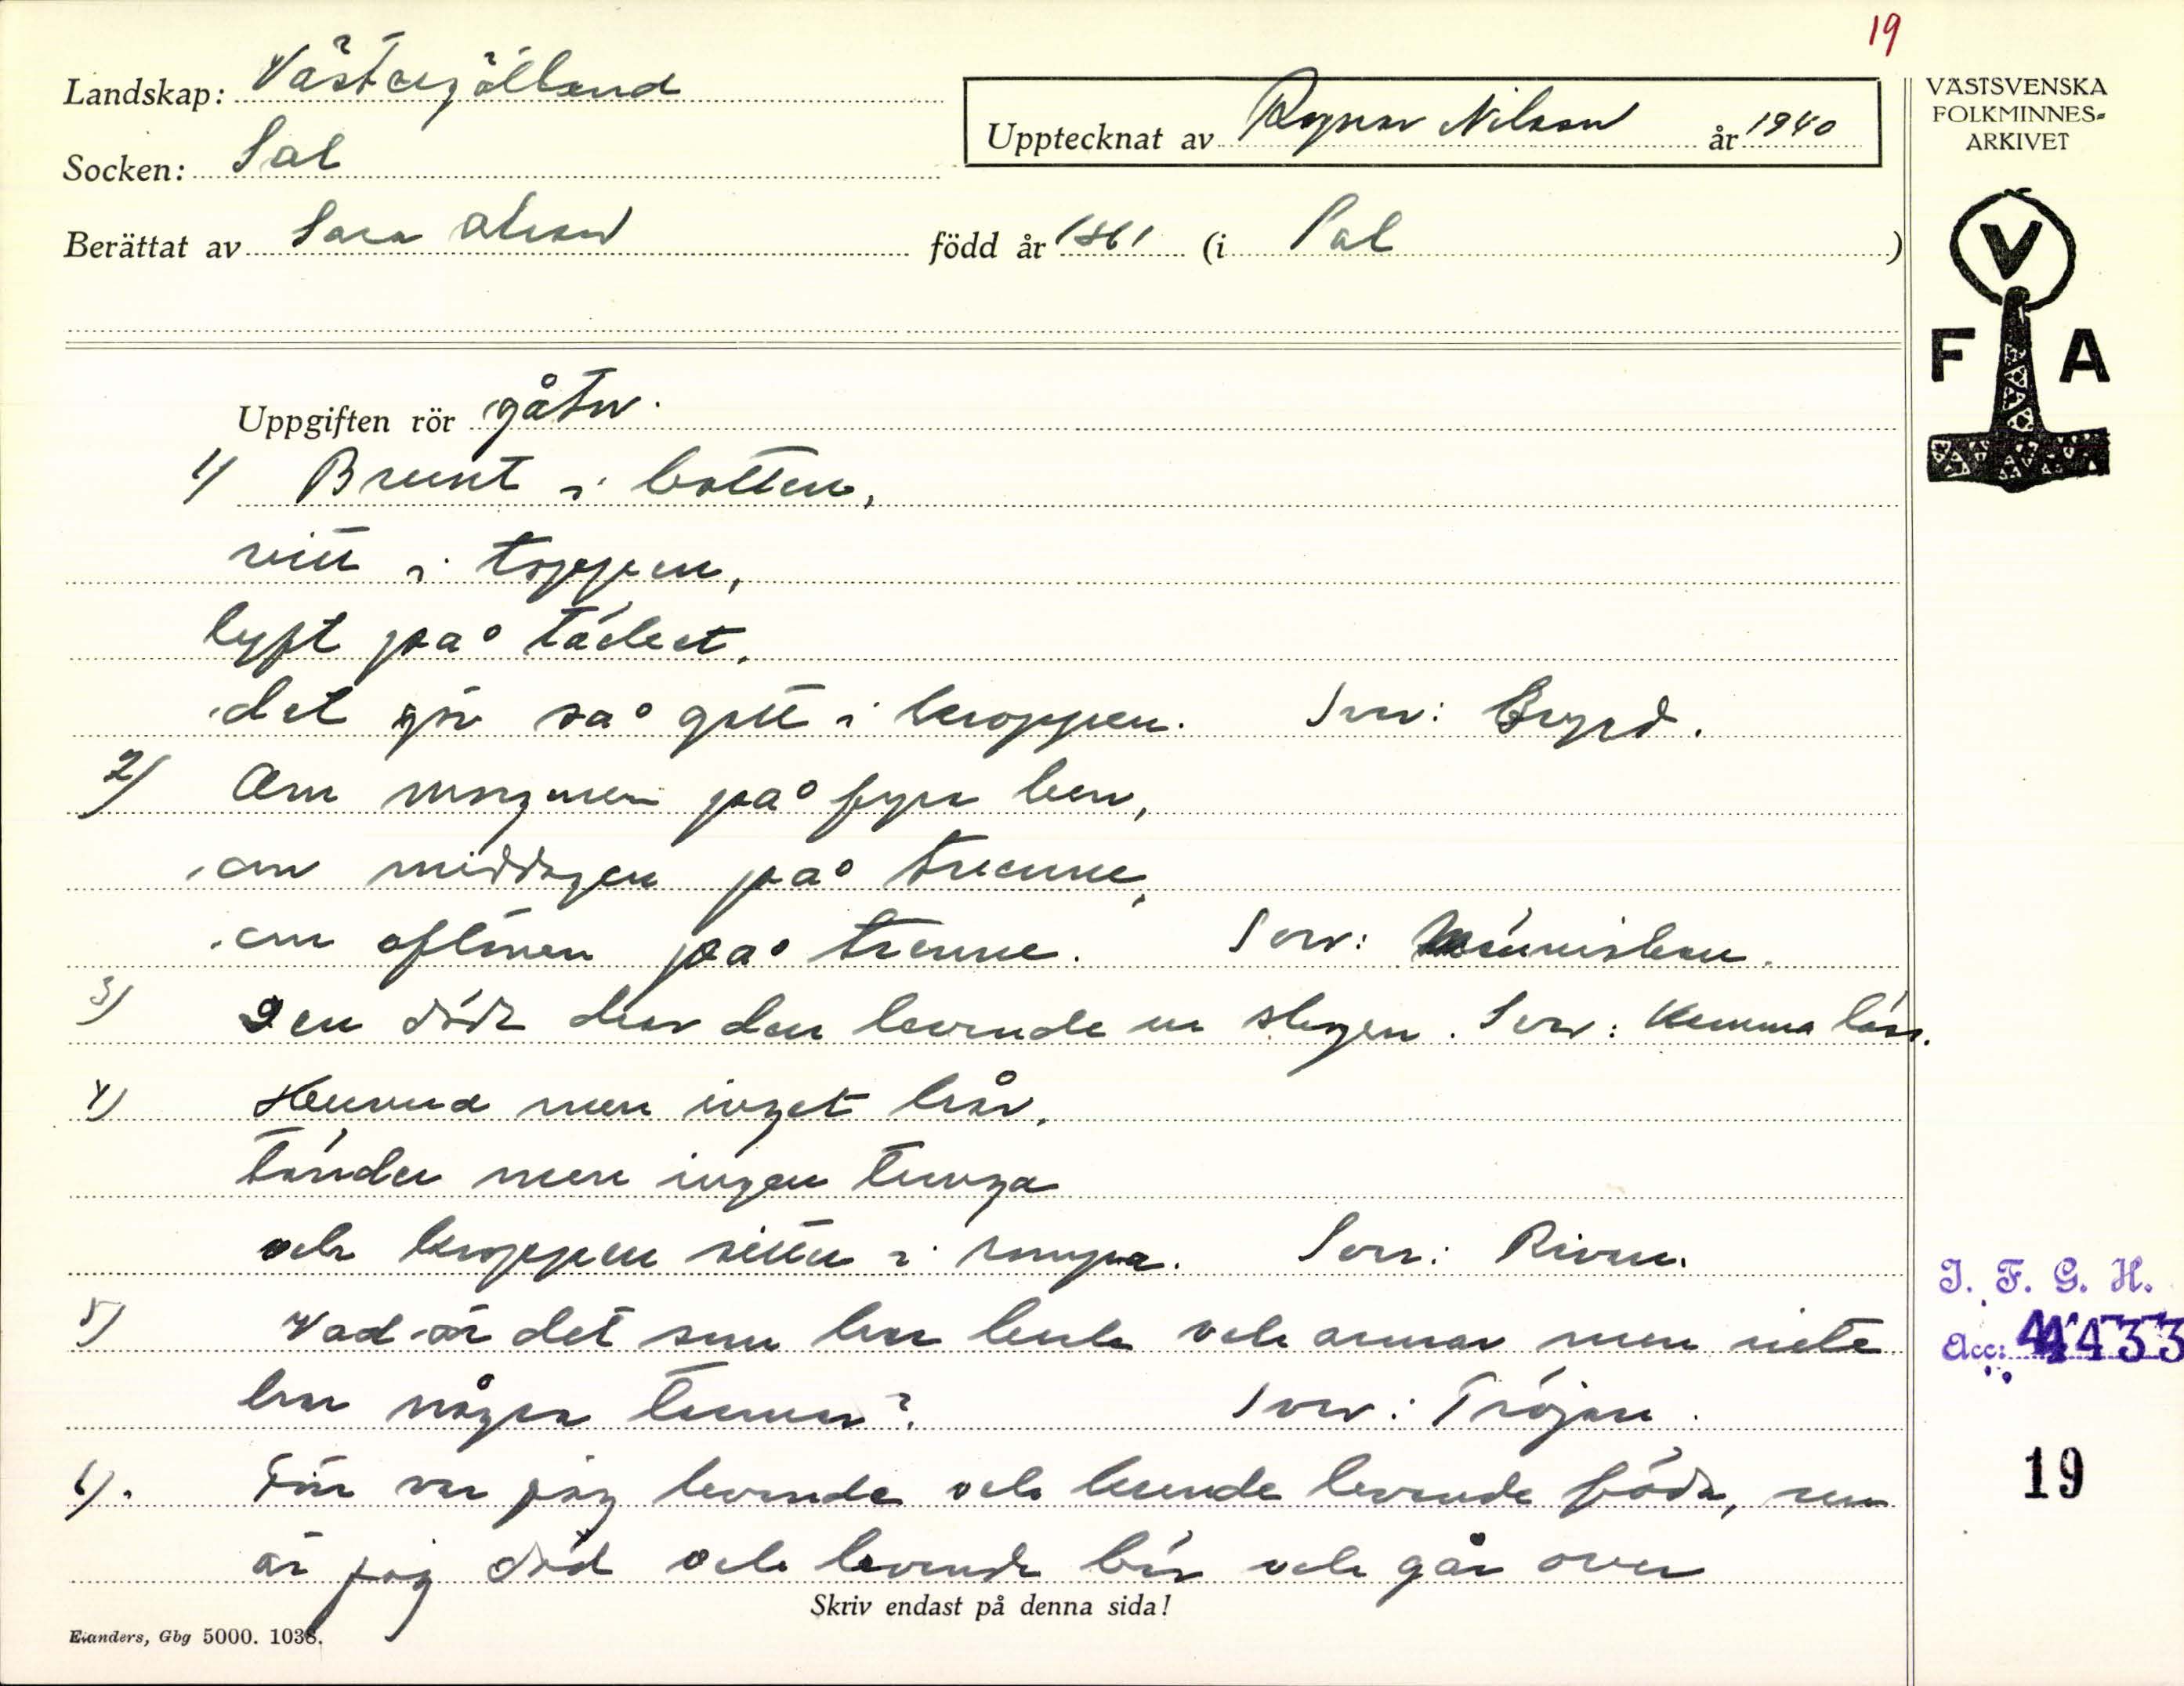 19
Landskap: Västergötland
Upptecknat av Ragnar Nilsson år 1940
Socken: Sal
Berättat av Sara Olsson född år 1861 (i Sal)
VÄSTSVENSKA
FOLKMINNES=
ARKIVET
V
F A
Uppgiften rör gåtor.
1) Brunt i botten,
vitt i toppen,
lyft på täcket,
det gör så gott i kroppen. Svar: Brygd.
2) Om morgonen på fyra ben,
om middagen på tvenne,
om aftonen på trenne. Svar: Människan.
3) Den döde drar den levande ur skogen. Svar: Kamma löss.
4) Huvud men inget hår,
tänder men ingen tunga
och kroppen sitter i rumpa. Svar: Rivan.
5) Vad är det som har hals och armar men inte
har några tarmar? Svar: Tröjan.
6). Förr var jag levande och kunde levande föda, nu
är jag död och levande bär och går över
Skriv endast på denna sida!
Elanders, Gbg 5000. 1038.
I. F. G. H.
Acc: 4433
19